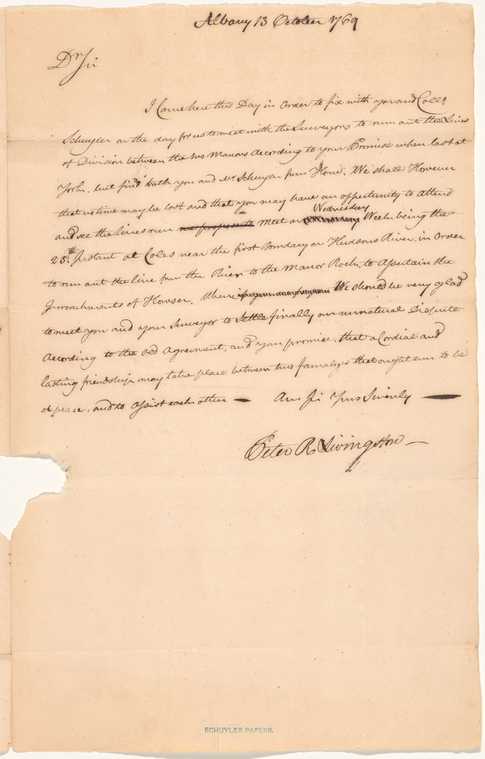 Albany 13 October 1769
Dr Sir
I Came here this Day in order to fix with you and Coll.
Schuyler on the day for us to meet with the Surveyors to run out the Lines
of Division between the two Manors According to your Promise when last at
York, but find both you and Mr Schuyler from Home. We shall However
that no time may be lost and that you may have an oppertunity to attend
Wednesday
and see the lines run meet on Week being the
25th Instant at Coles near the first Boundary on Hudsons River, in order
to run out the line from the River to the Manor Rock, to Assertain the
Incroachments of Howser. Where We should be very glad
to meet you and your Surveyor to Settle finally our unnatural Dispute
According to the old Agreement, and your promise, that a Cordial and
lasting friendship may take place between two familys that ought ever to be
at peace. and to Assist each other — Am Sir Yours Sincerly —
Peter R Livingston —
SCHUYLER PAPERS.